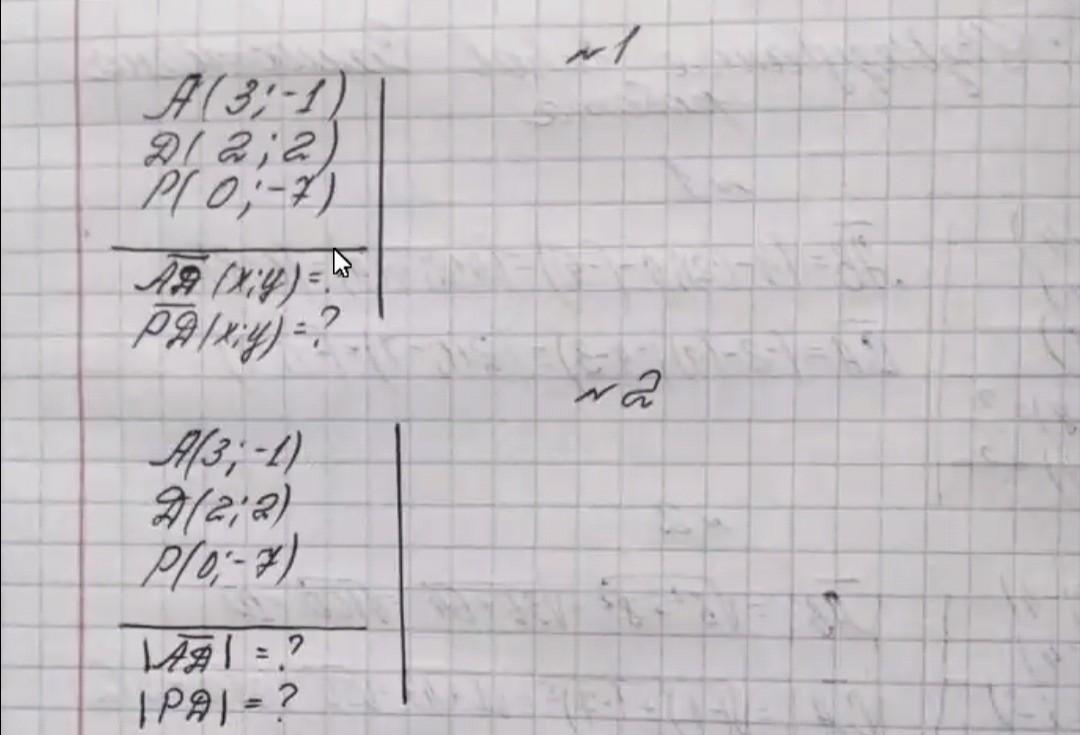 №1
A(3;-1)
D(2;2)
P(0;-7)
AD(x;y)=?
PD(x;y)=?
№2
A(3;-1)
D(2;2)
P(0;-7)
|AD|=?
|PD|=?